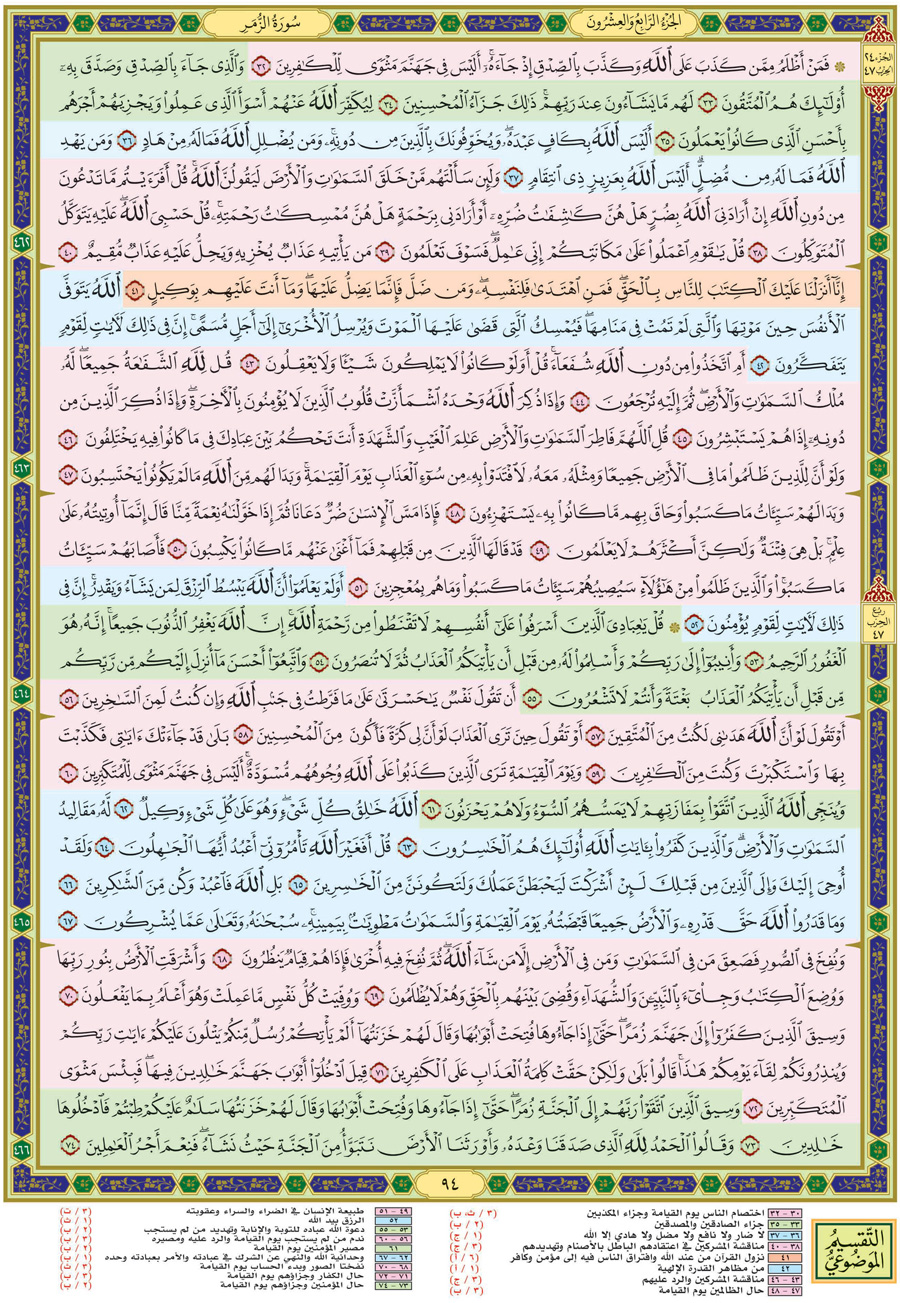 الجُزْءُ الرَّابِعُ وَالعِشْرُونَ
سُورَةُ الزُّمَرِ
الجُزء ٢٤
الحِزبُ ٤٧
۞ فَمَنۡ أَظۡلَمُ مِمَّن كَذَبَ عَلَى ٱللَّهِ وَكَذَّبَ بِٱلصِّدۡقِ إِذۡ جَآءَهُۥٓۚ أَلَيۡسَ فِي جَهَنَّمَ مَثۡوٗى لِّلۡكَٰفِرِينَ ٣٢ وَٱلَّذِي جَآءَ بِٱلصِّدۡقِ وَصَدَّقَ بِهِۦٓ
أُوْلَٰٓئِكَ هُمُ ٱلۡمُتَّقُونَ ٣٣ لَهُم مَّا يَشَآءُونَ عِندَ رَبِّهِمۡۚ ذَٰلِكَ جَزَآءُ ٱلۡمُحۡسِنِينَ ٣٤ لِيُكَفِّرَ ٱللَّهُ عَنۡهُمۡ أَسۡوَأَ ٱلَّذِي عَمِلُواْ وَيَجۡزِيَهُمۡ أَجۡرَهُم
بِأَحۡسَنِ ٱلَّذِي كَانُواْ يَعۡمَلُونَ ٣٥ أَلَيۡسَ ٱللَّهُ بِكَافٍ عَبۡدَهُۥۖ وَيُخَوِّفُونَكَ بِٱلَّذِينَ مِن دُونِهِۦۚ وَمَن يُضۡلِلِ ٱللَّهُ فَمَا لَهُۥ مِنۡ هَادٖ ٣٦ وَمَن يَهۡدِ
ٱللَّهُ فَمَا لَهُۥ مِن مُّضِلٍّۗ أَلَيۡسَ ٱللَّهُ بِعَزِيزٖ ذِي ٱنتِقَامٖ ٣٧ وَلَئِن سَأَلۡتَهُم مَّنۡ خَلَقَ ٱلسَّمَٰوَٰتِ وَٱلۡأَرۡضَ لَيَقُولُنَّ ٱللَّهُۚ قُلۡ أَفَرَءَيۡتُم مَّا تَدۡعُونَ
مِن دُونِ ٱللَّهِ إِنۡ أَرَادَنِيَ ٱللَّهُ بِضُرٍّ هَلۡ هُنَّ كَٰشِفَٰتُ ضُرِّهِۦٓ أَوۡ أَرَادَنِي بِرَحۡمَةٍ هَلۡ هُنَّ مُمۡسِكَٰتُ رَحۡمَتِهِۦۚ قُلۡ حَسۡبِيَ ٱللَّهُۖ عَلَيۡهِ يَتَوَكَّلُ
ٱلۡمُتَوَكِّلُونَ ٣٨ قُلۡ يَٰقَوۡمِ ٱعۡمَلُواْ عَلَىٰ مَكَانَتِكُمۡ إِنِّي عَٰمِلٞۖ فَسَوۡفَ تَعۡلَمُونَ ٣٩ مَن يَأۡتِيهِ عَذَابٞ يُخۡزِيهِ وَيَحِلُّ عَلَيۡهِ عَذَابٞ مُّقِيمٌ ٤٠
٤٦٢
إِنَّآ أَنزَلۡنَا عَلَيۡكَ ٱلۡكِتَٰبَ لِلنَّاسِ بِٱلۡحَقِّۖ فَمَنِ ٱهۡتَدَىٰ فَلِنَفۡسِهِۦۖ وَمَن ضَلَّ فَإِنَّمَا يَضِلُّ عَلَيۡهَاۖ وَمَآ أَنتَ عَلَيۡهِم بِوَكِيلٍ ٤١ ٱللَّهُ يَتَوَفَّى
ٱلۡأَنفُسَ حِينَ مَوۡتِهَا وَٱلَّتِي لَمۡ تَمُتۡ فِي مَنَامِهَاۖ فَيُمۡسِكُ ٱلَّتِي قَضَىٰ عَلَيۡهَا ٱلۡمَوۡتَ وَيُرۡسِلُ ٱلۡأُخۡرَىٰٓ إِلَىٰٓ أَجَلٖ مُّسَمًّىۚ إِنَّ فِي ذَٰلِكَ لَأٓيَٰتٖ لِّقَوۡمٖ
يَتَفَكَّرُونَ ٤٢ أَمِ ٱتَّخَذُواْ مِن دُونِ ٱللَّهِ شُفَعَآءَۚ قُلۡ أَوَلَوۡ كَانُواْ لَا يَمۡلِكُونَ شَيۡـٔٗا وَلَا يَعۡقِلُونَ ٤٣ قُل لِّلَّهِ ٱلشَّفَٰعَةُ جَمِيعٗاۖ لَّهُۥ
مُلۡكُ ٱلسَّمَٰوَٰتِ وَٱلۡأَرۡضِۖ ثُمَّ إِلَيۡهِ تُرۡجَعُونَ ٤٤ وَإِذَا ذُكِرَ ٱللَّهُ وَحۡدَهُ ٱشۡمَأَزَّتۡ قُلُوبُ ٱلَّذِينَ لَا يُؤۡمِنُونَ بِٱلۡأٓخِرَةِۖ وَإِذَا ذُكِرَ ٱلَّذِينَ مِن
دُونِهِۦٓ إِذَا هُمۡ يَسۡتَبۡشِرُونَ ٤٥ قُلِ ٱللَّهُمَّ فَاطِرَ ٱلسَّمَٰوَٰتِ وَٱلۡأَرۡضِ عَٰلِمَ ٱلۡغَيۡبِ وَٱلشَّهَٰدَةِ أَنتَ تَحۡكُمُ بَيۡنَ عِبَادِكَ فِي مَا كَانُواْ فِيهِ يَخۡتَلِفُونَ ٤٦
وَلَوۡ أَنَّ لِلَّذِينَ ظَلَمُواْ مَا فِي ٱلۡأَرۡضِ جَمِيعٗا وَمِثۡلَهُۥ مَعَهُۥ لَٱفۡتَدَوۡاْ بِهِۦ مِن سُوٓءِ ٱلۡعَذَابِ يَوۡمَ ٱلۡقِيَٰمَةِۚ وَبَدَا لَهُم مِّنَ ٱللَّهِ مَا لَمۡ يَكُونُواْ يَحۡتَسِبُونَ ٤٧
٤٦٣
وَبَدَا لَهُمۡ سَيِّـَٔاتُ مَا كَسَبُواْ وَحَاقَ بِهِم مَّا كَانُواْ بِهِۦ يَسۡتَهۡزِءُونَ ٤٨ فَإِذَا مَسَّ ٱلۡإِنسَٰنَ ضُرّٞ دَعَانَا ثُمَّ إِذَا خَوَّلۡنَٰهُ نِعۡمَةٗ مِّنَّا قَالَ إِنَّمَآ أُوتِيتُهُۥ عَلَىٰ
عِلۡمِۭۚ بَلۡ هِيَ فِتۡنَةٞ وَلَٰكِنَّ أَكۡثَرَهُمۡ لَا يَعۡلَمُونَ ٤٩ قَدۡ قَالَهَا ٱلَّذِينَ مِن قَبۡلِهِمۡ فَمَآ أَغۡنَىٰ عَنۡهُم مَّا كَانُواْ يَكۡسِبُونَ ٥٠ فَأَصَابَهُمۡ سَيِّـَٔاتُ
مَا كَسَبُواْۚ وَٱلَّذِينَ ظَلَمُواْ مِنۡ هَٰٓؤُلَآءِ سَيُصِيبُهُمۡ سَيِّـَٔاتُ مَا كَسَبُواْ وَمَا هُم بِمُعۡجِزِينَ ٥١ أَوَلَمۡ يَعۡلَمُوٓاْ أَنَّ ٱللَّهَ يَبۡسُطُ ٱلرِّزۡقَ لِمَن يَشَآءُ وَيَقۡدِرُۚ إِنَّ فِي
رُبعُ الحِزب ٤٧
ذَٰلِكَ لَأٓيَٰتٖ لِّقَوۡمٖ يُؤۡمِنُونَ ٥٢ ۞ قُلۡ يَٰعِبَادِيَ ٱلَّذِينَ أَسۡرَفُواْ عَلَىٰٓ أَنفُسِهِمۡ لَا تَقۡنَطُواْ مِن رَّحۡمَةِ ٱللَّهِۚ إِنَّ ٱللَّهَ يَغۡفِرُ ٱلذُّنُوبَ جَمِيعًاۚ إِنَّهُۥ هُوَ
ٱلۡغَفُورُ ٱلرَّحِيمُ ٥٣ وَأَنِيبُوٓاْ إِلَىٰ رَبِّكُمۡ وَأَسۡلِمُواْ لَهُۥ مِن قَبۡلِ أَن يَأۡتِيَكُمُ ٱلۡعَذَابُ ثُمَّ لَا تُنصَرُونَ ٥٤ وَٱتَّبِعُوٓاْ أَحۡسَنَ مَآ أُنزِلَ إِلَيۡكُم مِّن رَّبِّكُم
مِّن قَبۡلِ أَن يَأۡتِيَكُمُ ٱلۡعَذَابُ بَغۡتَةٗ وَأَنتُمۡ لَا تَشۡعُرُونَ ٥٥ أَن تَقُولَ نَفۡسٞ يَٰحَسۡرَتَىٰ عَلَىٰ مَا فَرَّطتُ فِي جَنۢبِ ٱللَّهِ وَإِن كُنتُ لَمِنَ ٱلسَّٰخِرِينَ ٥٦
٤٦٤
أَوۡ تَقُولَ لَوۡ أَنَّ ٱللَّهَ هَدَىٰنِي لَكُنتُ مِنَ ٱلۡمُتَّقِينَ ٥٧ أَوۡ تَقُولَ حِينَ تَرَى ٱلۡعَذَابَ لَوۡ أَنَّ لِي كَرَّةٗ فَأَكُونَ مِنَ ٱلۡمُحۡسِنِينَ ٥٨ بَلَىٰ قَدۡ جَآءَتۡكَ ءَايَٰتِي فَكَذَّبۡتَ
بِهَا وَٱسۡتَكۡبَرۡتَ وَكُنتَ مِنَ ٱلۡكَٰفِرِينَ ٥٩ وَيَوۡمَ ٱلۡقِيَٰمَةِ تَرَى ٱلَّذِينَ كَذَبُواْ عَلَى ٱللَّهِ وُجُوهُهُم مُّسۡوَدَّةٌۚ أَلَيۡسَ فِي جَهَنَّمَ مَثۡوٗى لِّلۡمُتَكَبِّرِينَ ٦٠
وَيُنَجِّي ٱللَّهُ ٱلَّذِينَ ٱتَّقَوۡاْ بِمَفَازَتِهِمۡ لَا يَمَسُّهُمُ ٱلسُّوٓءُ وَلَا هُمۡ يَحۡزَنُونَ ٦١ ٱللَّهُ خَٰلِقُ كُلِّ شَيۡءٖۖ وَهُوَ عَلَىٰ كُلِّ شَيۡءٖ وَكِيلٞ ٦٢ لَّهُۥ مَقَالِيدُ
ٱلسَّمَٰوَٰتِ وَٱلۡأَرۡضِۗ وَٱلَّذِينَ كَفَرُواْ بِـَٔايَٰتِ ٱللَّهِ أُوْلَٰٓئِكَ هُمُ ٱلۡخَٰسِرُونَ ٦٣ قُلۡ أَفَغَيۡرَ ٱللَّهِ تَأۡمُرُوٓنِّيٓ أَعۡبُدُ أَيُّهَا ٱلۡجَٰهِلُونَ ٦٤ وَلَقَدۡ
أُوحِيَ إِلَيۡكَ وَإِلَى ٱلَّذِينَ مِن قَبۡلِكَ لَئِنۡ أَشۡرَكۡتَ لَيَحۡبَطَنَّ عَمَلُكَ وَلَتَكُونَنَّ مِنَ ٱلۡخَٰسِرِينَ ٦٥ بَلِ ٱللَّهَ فَٱعۡبُدۡ وَكُن مِّنَ ٱلشَّٰكِرِينَ ٦٦
وَمَا قَدَرُواْ ٱللَّهَ حَقَّ قَدۡرِهِۦ وَٱلۡأَرۡضُ جَمِيعٗا قَبۡضَتُهُۥ يَوۡمَ ٱلۡقِيَٰمَةِ وَٱلسَّمَٰوَٰتُ مَطۡوِيَّٰتُۢ بِيَمِينِهِۦۚ سُبۡحَٰنَهُۥ وَتَعَٰلَىٰ عَمَّا يُشۡرِكُونَ ٦٧
٤٦٥
وَنُفِخَ فِي ٱلصُّورِ فَصَعِقَ مَن فِي ٱلسَّمَٰوَٰتِ وَمَن فِي ٱلۡأَرۡضِ إِلَّا مَن شَآءَ ٱللَّهُۖ ثُمَّ نُفِخَ فِيهِ أُخۡرَىٰ فَإِذَا هُمۡ قِيَامٞ يَنظُرُونَ ٦٨ وَأَشۡرَقَتِ ٱلۡأَرۡضُ بِنُورِ رَبِّهَا
وَوُضِعَ ٱلۡكِتَٰبُ وَجِاْيٓءَ بِٱلنَّبِيِّـۧنَ وَٱلشُّهَدَآءِ وَقُضِيَ بَيۡنَهُم بِٱلۡحَقِّ وَهُمۡ لَا يُظۡلَمُونَ ٦٩ وَوُفِّيَتۡ كُلُّ نَفۡسٖ مَّا عَمِلَتۡ وَهُوَ أَعۡلَمُ بِمَا يَفۡعَلُونَ ٧٠
وَسِيقَ ٱلَّذِينَ كَفَرُوٓاْ إِلَىٰ جَهَنَّمَ زُمَرًاۖ حَتَّىٰٓ إِذَا جَآءُوهَا فُتِحَتۡ أَبۡوَٰبُهَا وَقَالَ لَهُمۡ خَزَنَتُهَآ أَلَمۡ يَأۡتِكُمۡ رُسُلٞ مِّنكُمۡ يَتۡلُونَ عَلَيۡكُمۡ ءَايَٰتِ رَبِّكُمۡ
وَيُنذِرُونَكُمۡ لِقَآءَ يَوۡمِكُمۡ هَٰذَاۚ قَالُواْ بَلَىٰ وَلَٰكِنۡ حَقَّتۡ كَلِمَةُ ٱلۡعَذَابِ عَلَى ٱلۡكَٰفِرِينَ ٧١ قِيلَ ٱدۡخُلُوٓاْ أَبۡوَٰبَ جَهَنَّمَ خَٰلِدِينَ فِيهَاۖ فَبِئۡسَ مَثۡوَى
ٱلۡمُتَكَبِّرِينَ ٧٢ وَسِيقَ ٱلَّذِينَ ٱتَّقَوۡاْ رَبَّهُمۡ إِلَى ٱلۡجَنَّةِ زُمَرًاۖ حَتَّىٰٓ إِذَا جَآءُوهَا وَفُتِحَتۡ أَبۡوَٰبُهَا وَقَالَ لَهُمۡ خَزَنَتُهَا سَلَٰمٌ عَلَيۡكُمۡ طِبۡتُمۡ فَٱدۡخُلُوهَا
خَٰلِدِينَ ٧٣ وَقَالُواْ ٱلۡحَمۡدُ لِلَّهِ ٱلَّذِي صَدَقَنَا وَعۡدَهُۥ وَأَوۡرَثَنَا ٱلۡأَرۡضَ نَتَبَوَّأُ مِنَ ٱلۡجَنَّةِ حَيۡثُ نَشَآءُۖ فَنِعۡمَ أَجۡرُ ٱلۡعَٰمِلِينَ ٧٤
٤٦٦
٩٤
التَّقسِيمُ المَوضُوعِيُّ
٣٠ - ٣٢ اختصام الناس يوم القيامة وجزاء المكذبين
٣٣ - ٣٥ جزاء الصادقين والمصدقين
٣٦ - ٣٧ لا ضار ولا نافع ولا مضل ولا هادي إلا الله
٣٨ - ٤٠ مناقشة المشركين في اعتقادهم الباطل بالأصنام وتهديدهم
٤١ نزول القرآن من عند الله وافتراق الناس فيه إلى مؤمن وكافر
٤٢ من مظاهر القدرة الإلهية
٤٣ - ٤٦ مناقشة المشركين والرد عليهم
٤٧ - ٤٨ حال الظالمين يوم القيامة
٤٩ - ٥١ طبيعة الإنسان في الضراء والسراء وعقوبته
٥٢ الرزق بيد الله
٥٣ - ٥٥ دعوة الله عباده للتوبة والإنابة وتهديد من لم يستجب
٥٦ - ٦٠ ندم من لم يستجب يوم القيامة والرد عليه ومصيره
٦١ مصير المؤمنين يوم القيامة
٦٢ - ٦٧ وحدانية الله والنهي عن الشرك في عبادته والأمر بعبادته وحده
٦٨ - ٧٠ نفختا الصور وبدء الحساب يوم القيامة
٧١ - ٧٢ حال الكفار وجزاؤهم يوم القيامة
٧٣ - ٧٤ حال المؤمنين وجزاؤهم يوم القيامة